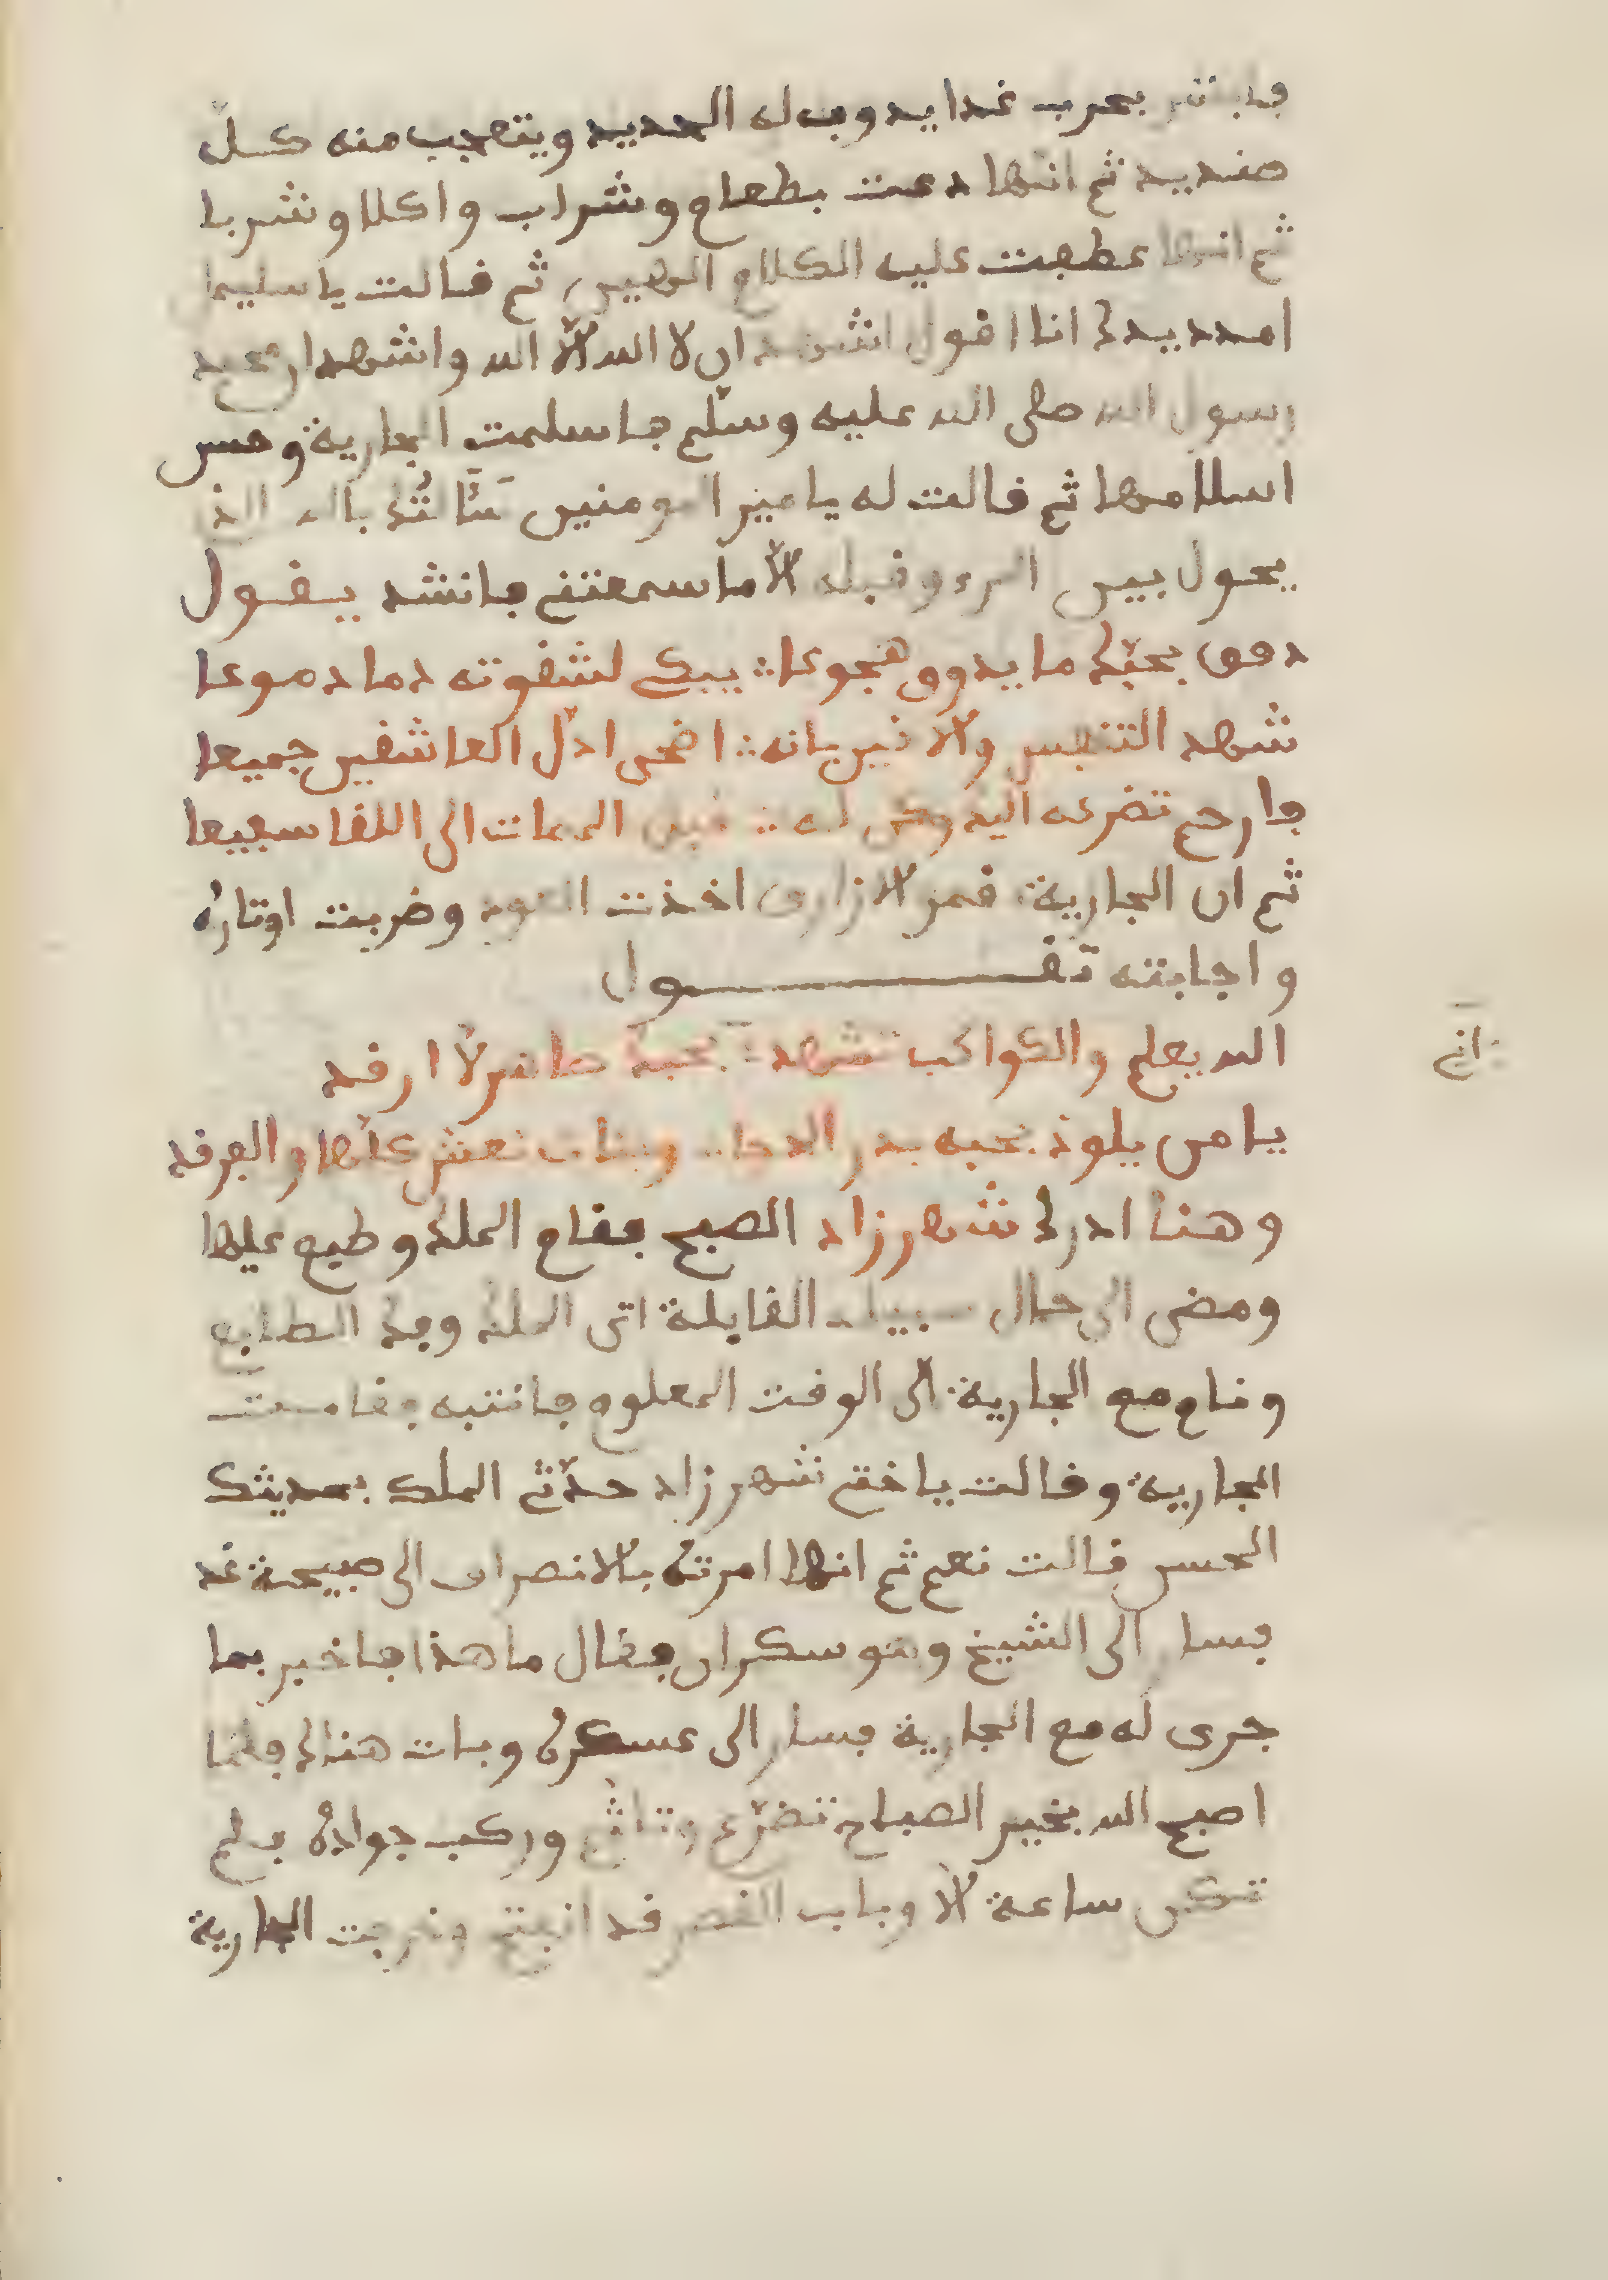 فابشر بحرب غدا يدوب له الحديد ويتعجب منه كلّ
صنديد ثم انها دعت بطعام وشراب واكلا وشربا
ثم انها عطفت عليه الكلام الهين ثم قالت يا سليما
امدد يدك انا اقول اشهد ان لا اله الاّ الله واشهد ان محمد
رسول الله صلى الله عليه وسلّم فاسلمت الجارية وحسن
اسلامها ثم قالت له يامير المومنين سَالتُك بالله الذ
يحول بين المرء وقبله الاّ ما سمعتني فانشد يقول
دنف بحبّك ما يدوق هجوعا ∴ يبكي لشقوته دما دموعا
شهد التنفس والانين بانه ∴ اضحى ادلّ العاشقين جميعا
فارحم تضرعه اليه وكن له ∴ قبل الممات الى اللقا سبيعا
ثم ان الجارية قمر الازارى اخذت العود وضربت اوتاره
واجابته تقول
الله يعلم والكواكب تشهد ∴ بحبك حاضر لا ارقد
: اني
يا من يلوذ بحبه بدر الدجا ∴ وبنات نعش كلّها والفرقد
وهنا ادرك شهرزاد الصبح فقام الملك وطبع عليها
ومضى الى حال سبيله القابلة اتى الملك وفك الطابع
ونام مع الجارية الى الوقت المعلوم فانتبه فقامت
الجارية وقالت ياختي شهرزاد حدّثي الملك بحديثك
الحسن قالت نعم ثم انها امرته بالانصراف الى صبيحة غد
فسار الى الشيخ وهو سكران فقال ما هذا فاخبر بما
جرى له مع الجارية فسار الى عسكره وبات هنالك فلمّا
اصبح الله بخير الصباح تضرّع وتلثّم وركب جواده فلم
تكن ساعة الاّ وباب القصر قد انفتح وخرجت الجارية